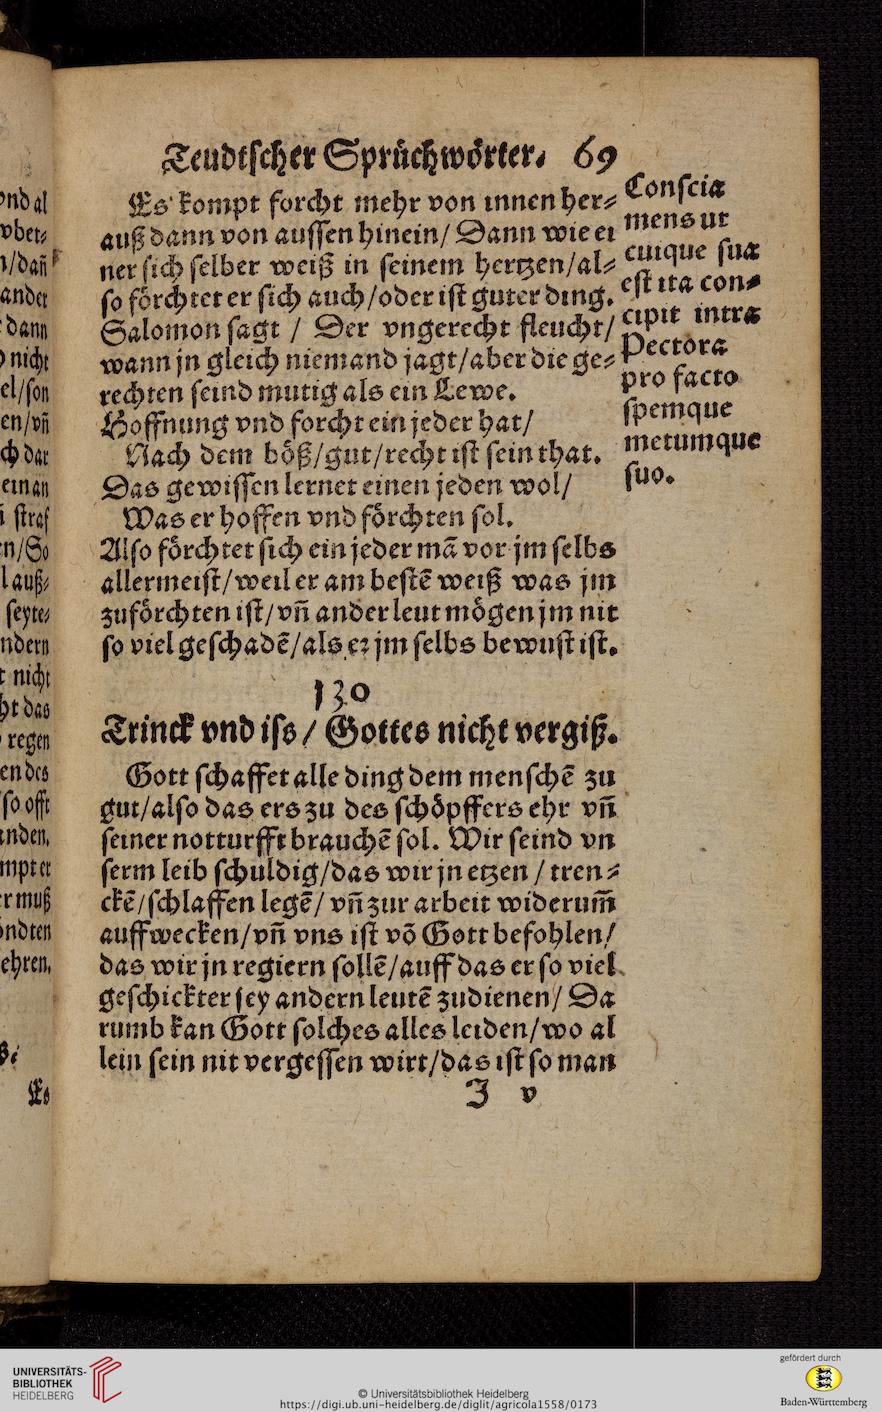 Teudtscher Sprüchwörter. 69
Es kompt forcht mehr von innen her⸗
auß dann von aussen hinein/ Dann wie ei
ner sich selber weiß in seinem hertzen/al⸗
so förchtet er sich auch/oder ist guter ding.
Salomon sagt / Der vngerecht fleucht/
wann jn gleich niemand jagt/aber die ge⸗
rechten seind mutig als ein Lewe.
Hoffnung vnd forcht ein jeder hat/
Nach dem böß/gut/recht ist sein that.
Das gewissen lernet einen jeden wol/
Was er hoffen vnd förchten sol.
Also förchtet sich ein jeder mã vor jm selbs
allermeist/weil er am bestẽ weiß was jm
zuförchten ist/vñ ander leut mögen jm nit
so viel geschadẽ/als er jm selbs bewust ist.
Conscia
mens ut
cuique sua
est ita con⸗
cipit intra
Pectora
pro facto
spemque
metumque
suo.
130
Trinck vnd iss / Gottes nicht vergiß.
Gott schaffet alle ding dem menschẽ zu
gut/also das ers zu des schöpffers ehr vñ
seiner notturfft brauchẽ sol. Wir seind vn
serm leib schuldig/das wir jn etzen / tren⸗
ckẽ/schlaffen legẽ/ vñ zur arbeit widerum̃
auffwecken/vñ vns ist võ Gott befohlen/
das wir jn regiern sollẽ/auff das er so viel
geschickter sey andern leutẽ zudienen/ Da
rumb kan Gott solches alles leiden/wo al
lein sein nit vergessen wirt/das ist so man
J v
vnd al
vber⸗
/dañ
ander
dann
nicht
el/son
en/vñ
ch dar
ein an
straf
n/So
l auß⸗
seyte⸗
ndern
nicht
ht das
regen
en des
so offt
inden.
mpt er
r muß
ndten
ehren.
Es
UNIVERSITÄTS-
BIBLIOTHEK
HEIDELBERG
© Universitätsbibliothek Heidelberg
https://digi.ub.uni-heidelberg.de/diglit/agricola1558/0173
gefördert durch
Baden-Württemberg